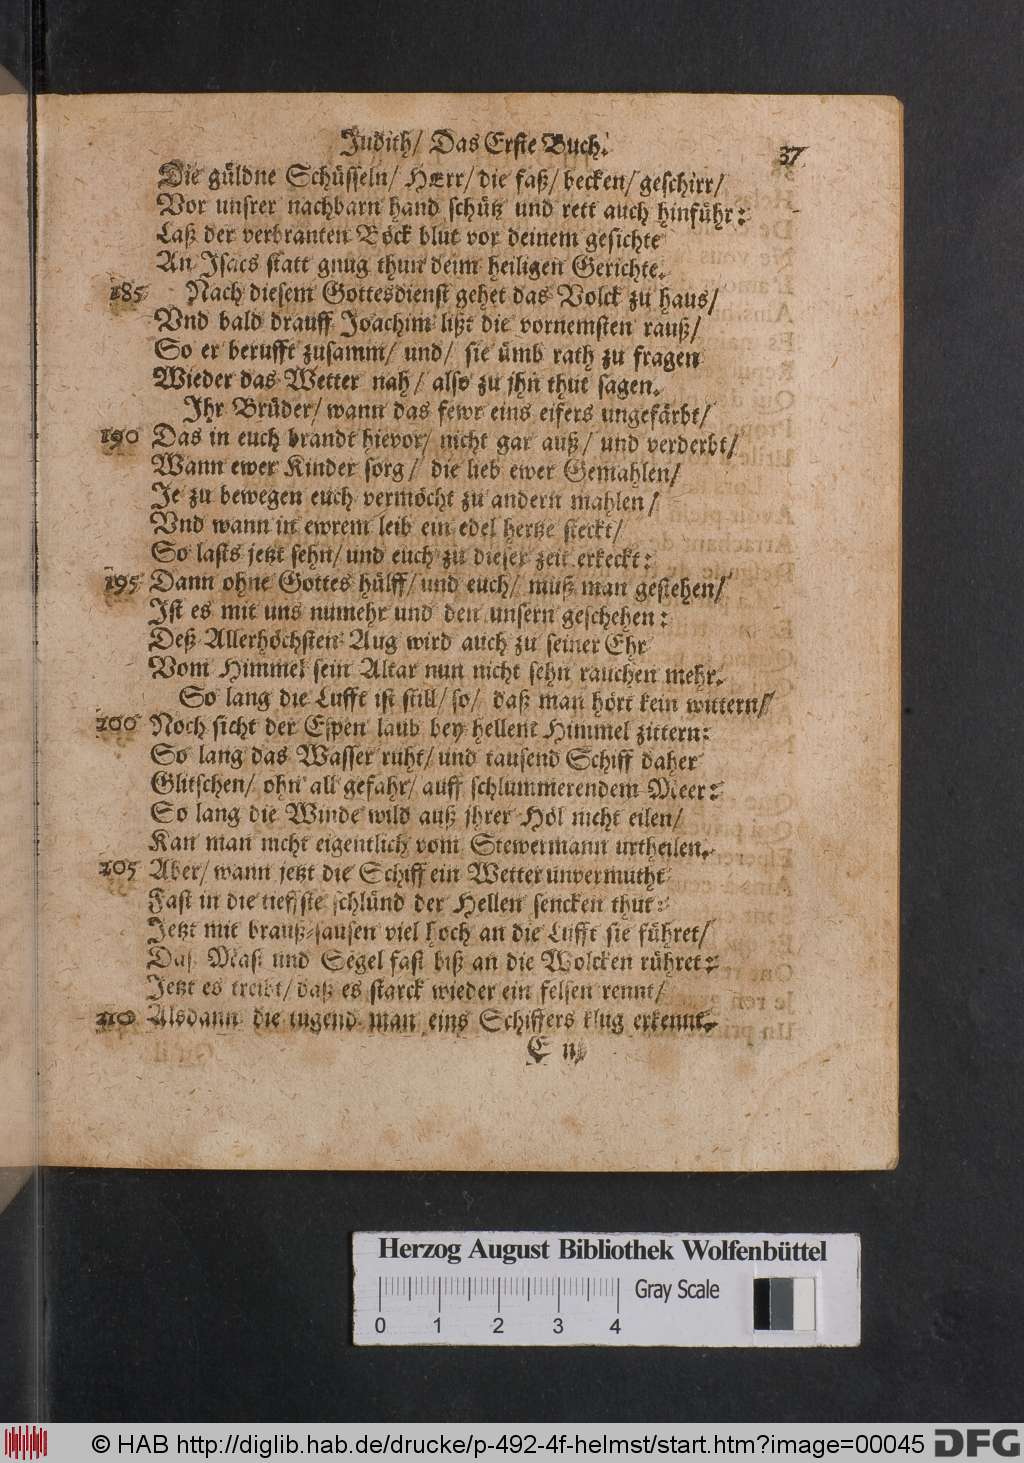 Judith/ Das Erste Buch. 37
Die güldne Schüsseln/ HErr/ die faß/ becken/ geschirr/
Vor unsrer nachbarn hand schütz und rett auch hinführ:
Laß der verbranten Böck blut vor deinem gesichte
An Isaacs statt gnug thun deim heiligen Gerichte.
185 Nach diesem Gottesdienst gehet das Volck zu haus/
Vnd bald drauff Joachim lißt die vornemsten rauß/
So er berufft zusamm/ und/ sie ümb rath zu fragen
Wieder das Wetter nah/ also zu jhn thut sagen.
Ihr Brüder/ wann das fewr eins eifers ungefärbt/
190 Das in euch brandt hievor/ nicht gar auß/ und verderbt/
Wann ewer Kinder sorg/ die lieb ewer Gemahlen/
Je zu bewegen euch vermöcht zu andern mahlen/
Vnd wann in ewrem leib ein edel hertze steckt/
So lasts jetzt sehn/ und euch zu dieser zeit erkeckt:
195 Dann ohne Gottes hülff/ und euch/ muß man gestehen/
Ist es mit uns numehr und den unsern geschehen:
Deß Allerhöchsten Aug wird auch zu seiner Ehr
Vom Himmel sein Altar nun nicht sehn rauchen mehr.
So lang die Lufft ist still/ so/ daß man hört kein wittern/
200 Noch sicht der Espen laub bey hellem Himmel zittern:
So lang das Wasser ruht/ und tausend Schiff daher
Glitschen/ ohn all gefahr/ auff schlummerendem Meer:
So lang die Winde wild auß jhrer Höl nicht eilen/
Kan man nicht eigentlich vom Stewermann urtheilen.
205 Aber/ wann jetzt die Schiff ein Wetter unvermutht
Fast in die tieffste schlünd der Hellen sencken thut:
Jetzt mit brauß-sausen viel hoch an die Lufft sie führet/
Daß Mast und Segel fast biß an die Wolcken rühret:
Jetzt es treibt/ daß es starck wieder ein felsen rennt/
210 Alsdann die tugend man eins Schiffers klug erkennt.
E
Herzog August Bibliothek Wolfenbüttel
0 1 2 3 4 Gray Scale
© HAB http://diglib.hab.de/drucke/p-492-4f-helmst/start.htm?image=00045 DFG